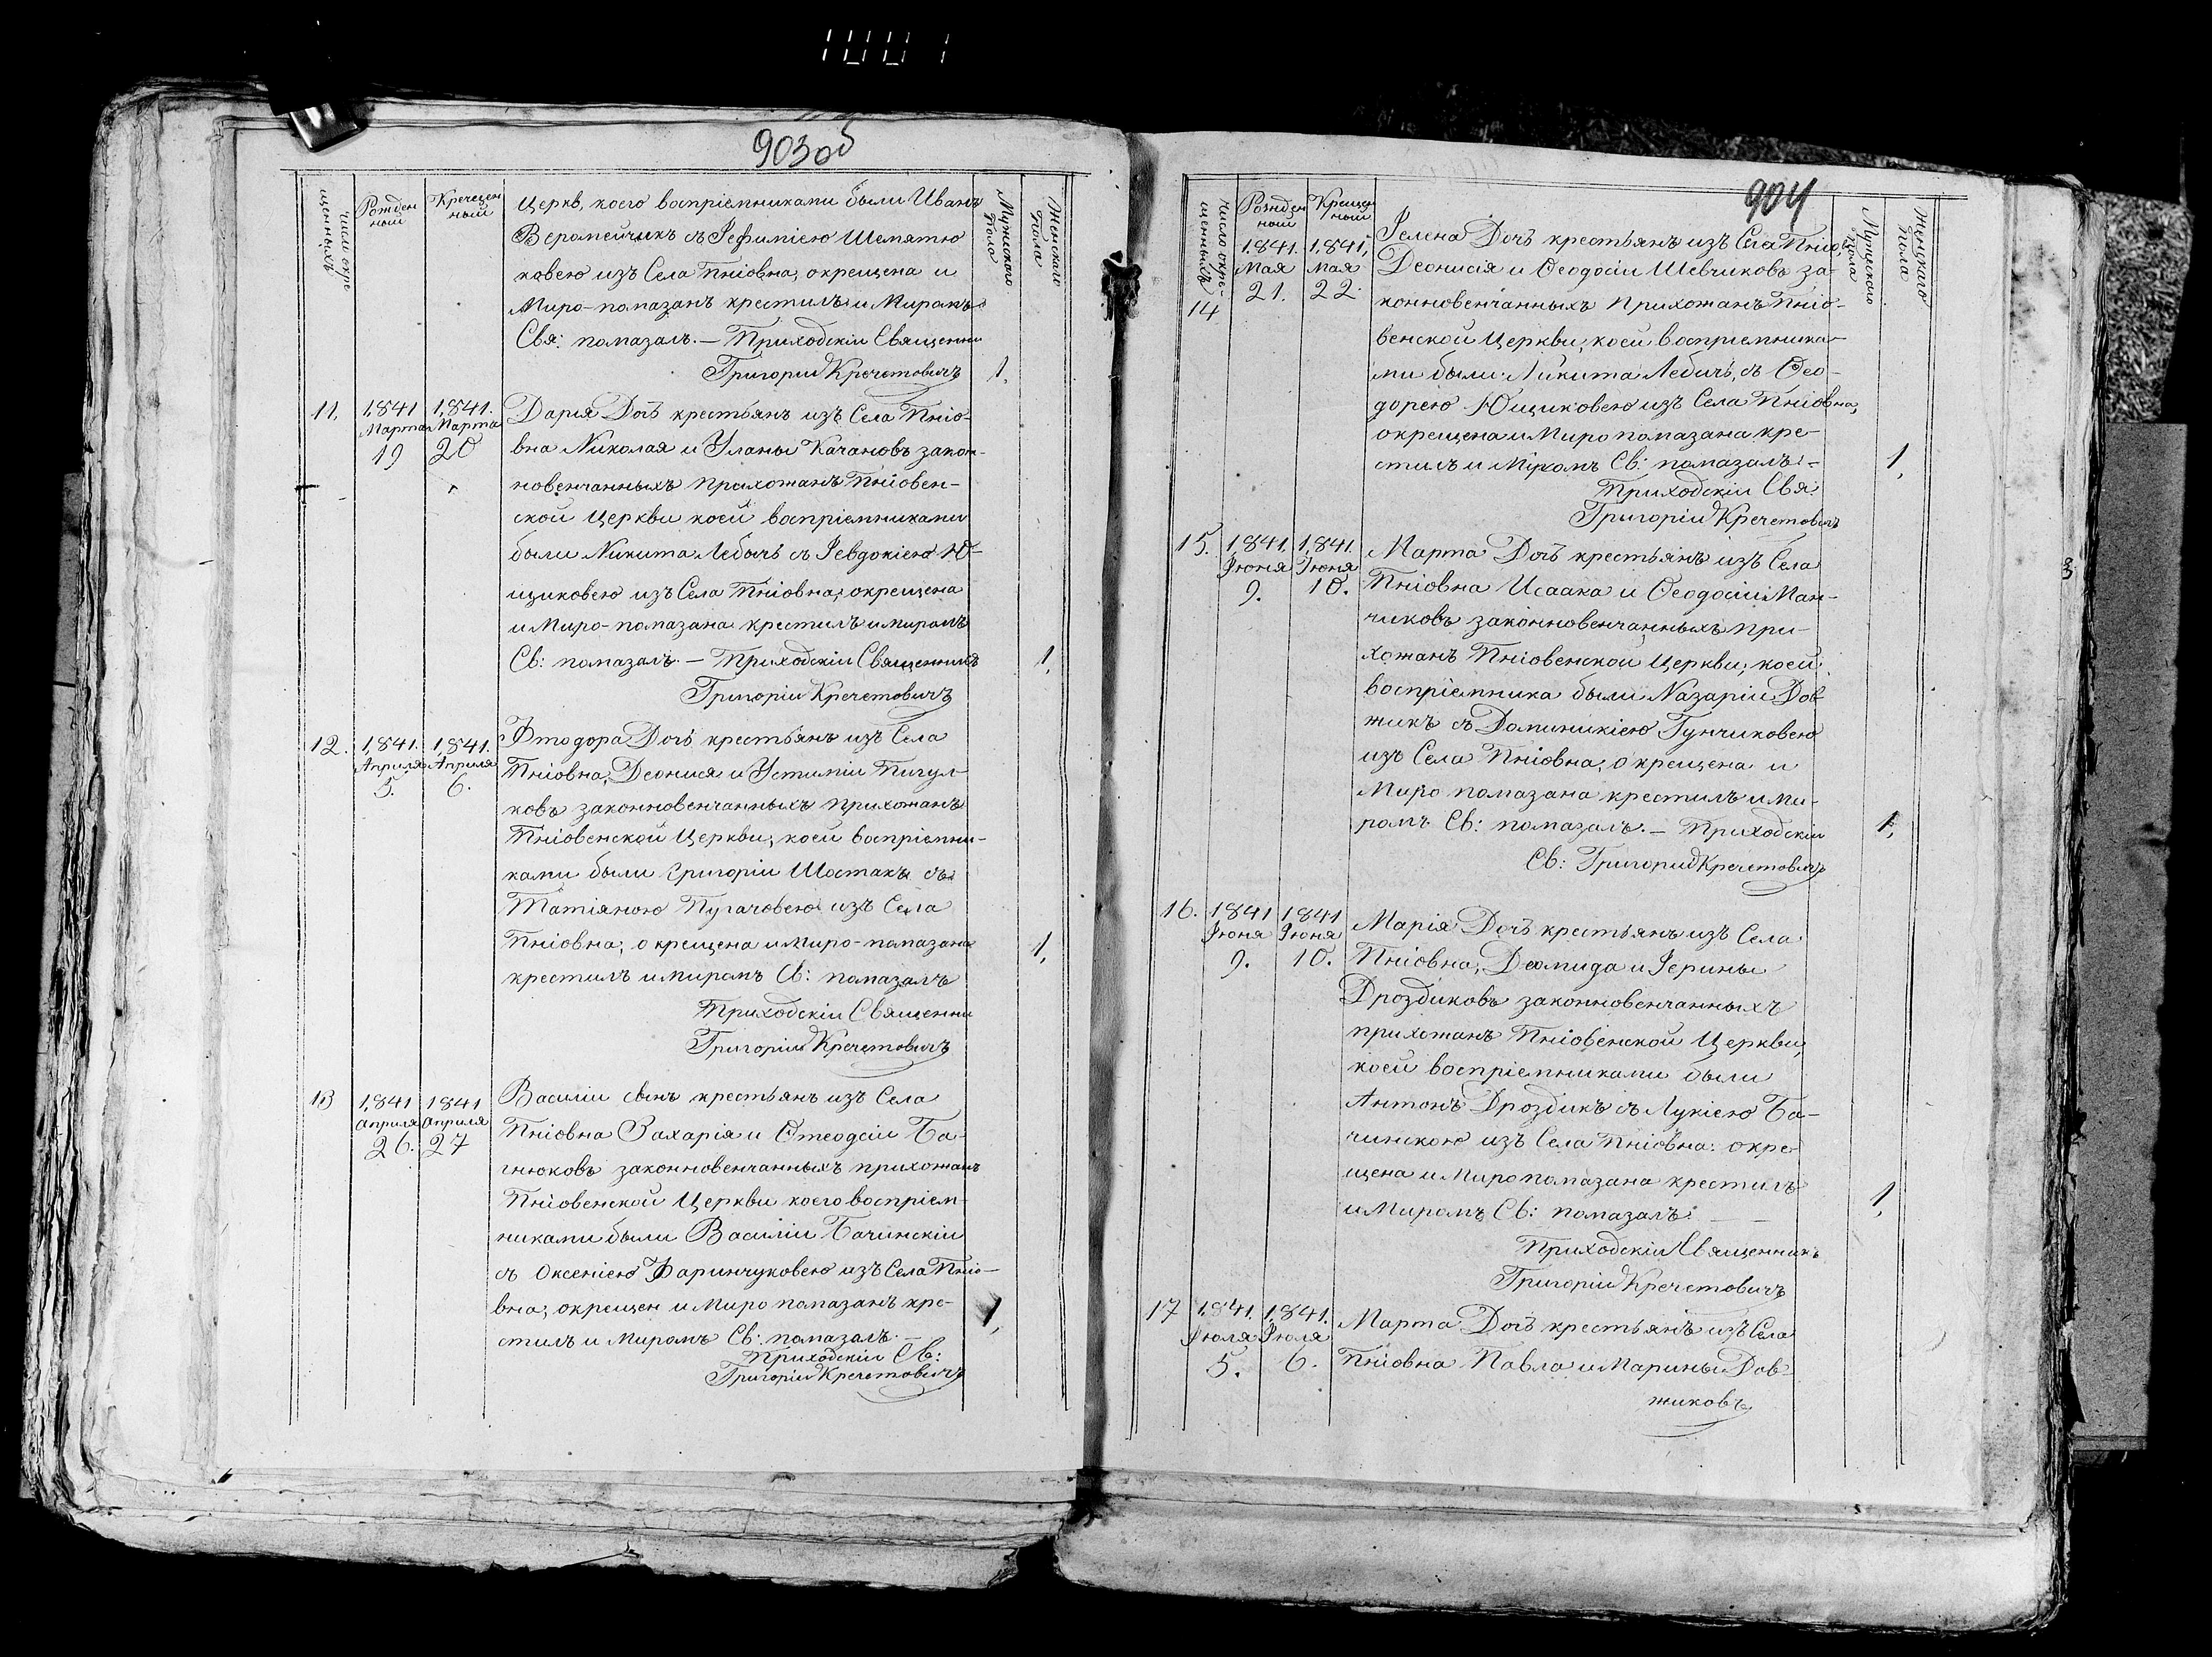 1001
903об
Число окре
щенныхъ
Рожден
ный
Крещен
ный
Мужискаго
Пола
Женскаго
Пола
Церкв, коего воспріемниками были Иванъ
Веремейчикъ съ Іефиміею Шемятю
ковею изъ Села Пніовна, окрещена и
Миро-помазанъ крестилъ и Миромъ
Свя: помазалъ. — Приходскіи Священни
Григории Кречетовичъ
1.
11.
1841
Марта
19
1841.
Марта
20
Дарія Дочь крестьянъ изъ Села Пніо-
вна Николая и Уланы Качановъ закон-
новенчанныхъ прихожанъ Пніовен-
ской Церкви коей воспріемниками
были Никита Лебичъ съ Іевдокіею Ю-
щиковею изъ Села Пніовна, окрещена
и Миро-помазана крестилъ и миромъ
Св: помазалъ. — Приходскіи Священникъ
Григоріи Кречетовичъ
1,
12.
1,841.
Апрúля
5.
1,841.
Апрúля
6.
Фтодора Дочь крестьянъ изъ Села
Пніовна, Деонися и Устиміи Пигул-
ковъ законновенчанныхъ прихожанъ
Пніовенской Церкви, коей воспріемни-
ками были Григоріи Шостакъ съ
Татіяною Пугачовею изъ Села
Пніовна, окрещена и Миро-помазана
крестилъ и миромъ Св: помазалъ
Приходскіи Священни
Григоріи Кречетовичъ
1,
13
1,841
Апреля
26.
1841
Апреля
27
Василіи сынъ крестьянъ изъ Села
Пніовна Захарія и Отеодсіи Ба-
гнюковъ законновенчанныхъ прихожанъ
Пніовенской Церкви коего воспріем-
никами были Василіи Бачинскіи
съ Оксеніею Фаринчуковею изъ Села Пніо-
вна, окрещен и Миро помазанъ кре-
стилъ и Миромъ Св: помазалъ. —
Приходскіи Св:
Григоріи Кречетовичъ
1,
904
Число окре-
щенныхъ
Рожден
ный
Крещен
ный
Мужескаго
Пола
Женскаго
Пола
14
1,841.
Мая
21.
1,841,
Мая
22.
Іелена Дочь крестьянъ изъ Села Пніо,
Деонисія и Ѳеодосіи Шевчиковъ за-
конновенчанныхъ Прихожанъ Пніо-
венской Церкви, коей воспріемника-
ми были Никита Лебичъ, съ Ѳео-
дорею Ющиковею изъ Села Пніовна,
окрещена и Миро помазана кре-
стилъ и Міромъ Св: помазалъ. -
Приходскіи Свя:
Григоріи Кречетовичъ
1,
15.
1,841.
Іюня
9.
1,841.
Іюня
10.
Марта Дочь крестьянъ изъ Села
Пніовна Исаака и Ѳеодосіи Ман-
чиковъ законновенчанныхъ при-
хожанъ Пніовенской Церкви, коей
воспріемника были Назаріи Дов-
жикъ съ Доминикіею Гунчиковею
изъ Села Пніовна, окрещена и
Миро помазана крестилъ и ми-
ромъ Св: помазалъ. — Приходскіи
Св: Григории Кречетовичъ
1,
16.
1841
Іюня
9.
1841
Іюня
10.
Марія Дочь крестьянъ изъ Села
Пніовна, Деомида и Іерины
Дроздиковъ законновенчанныхъ
прихожанъ Пніовенской Церкви,
коей воспріемниками были
Антонъ Дроздикъ съ Лукіею Ба-
чинскою изъ Села Пніовна: окре
щена и Миропомазана крестилъ
и Миромъ Св: помазалъ. — —
Приходскіи Священникъ
Григоріи Кречетовичъ
1,
17
1,841.
Іюля
5.
1,841.
Іюля
6.
Марта Дочь крестьянъ изъ Села
Пніовна Павла и Марины Дов-
жиковъ